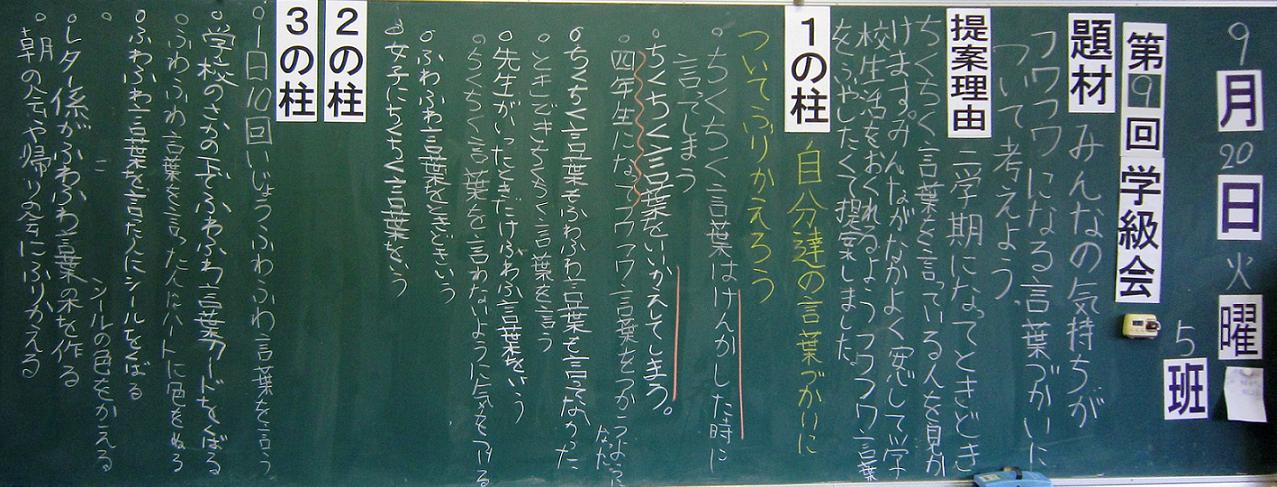 9月20日火曜
5班
第9回学級会
題材 みんなの気持ちが
フワフワになる言葉づかいに
ついて考えよう。
提案理由 二学期になってときどき
ちくちく言葉を言っている人を見か
けます。みんながなかよく安心して学
校生活をおくれるようフワフワ言葉
をふやしたくて提案しました。
1の柱 自分達の言葉づかいに
ついてふりかえろう
。ちくちく言葉はけんかした時に
言てしまう
。ちくちく言葉をいいかえしてしまう。
。四年生になてフワフワ言葉をつかうように
なた
。ちくちく言葉もふわふわ言葉も言てなかった
。ときどきちくちく言葉を言う
。先生がいったときだけふわふわ言葉をいう
。ちくちく言葉を言わないように気をつける
。ふわふわ言葉をときどきいう
。女子にちくちく言葉をいう
2の柱
3の柱
。1日10回いじょうふわふわ言葉を言う
。学校のきのうでふわふわ言葉カードをくばる
。ふわふわ言葉を言った人にハートに色をぬる
。ふわふわ言葉を言た人にシールをくばる
。〃 シールの色をかえる
。レター係がふわふわ言葉の木を作る
。朝の会や帰りの会にふりかえる